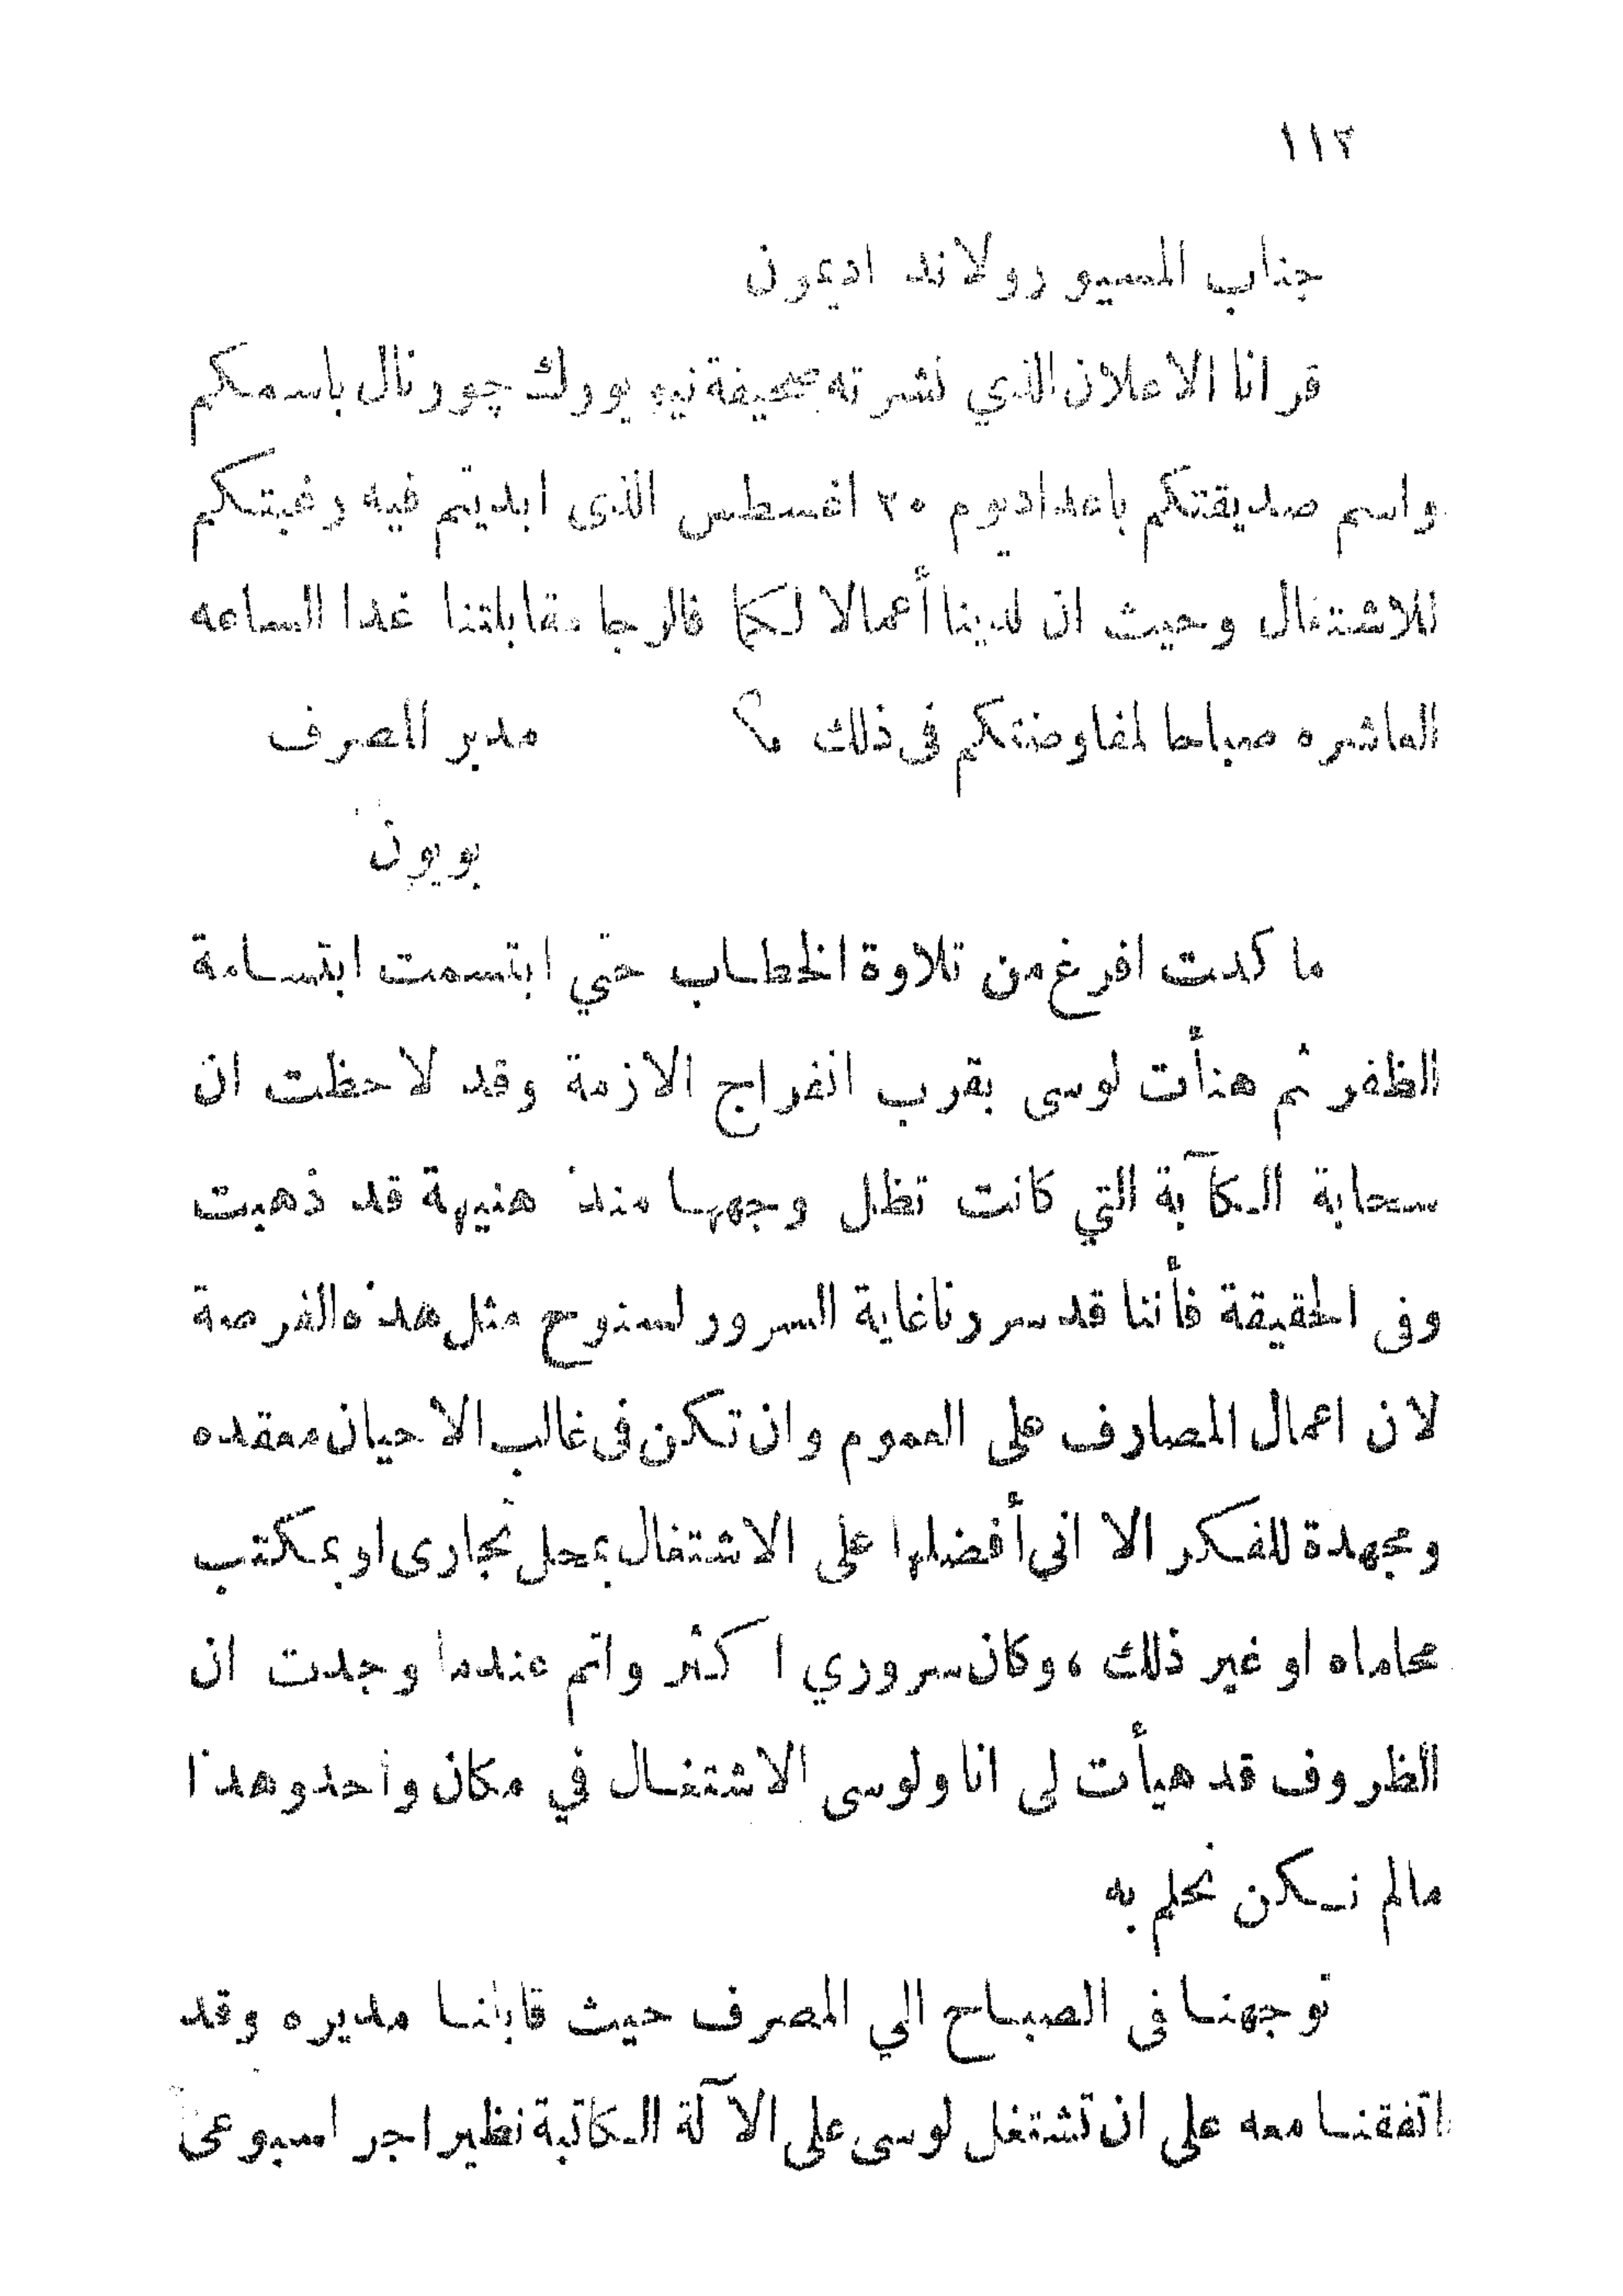 ١١٢
جناب المسيو رولاند اديمون
قرانا الاعلان الذي نشرته صحيفة نيو يورك چورنال باسمكم
واسم صديقتكم باعداديوم ٢٠ اغسطس الذى ابديتم فيه رغبتكم
للاشتغال وحيث ان لدينا أعمالا لكما فالرجا مقابلتنا غدا الساعه
العاشره صباحا لمفاوضتكم فى ذلك مدير المصرف
بويون
ما كدت افرغ من تلاوة الخطاب حتي ابتسمت ابتسامة
الظفر ثم هنأت لوسى بقرب انفراج الازمة وقد لاحظت ان
سحابة الكآبة التي كانت تظل وجهها منذ هنيهة قد ذهبت
وفى الحقيقة فأننا قد سررنا غاية السرور لسنوح مثل هذه الفرصة
لان اعمال المصارف على العموم وان تكن فى غالب الاحيان معقده
ومجهدة للفكر الا اني أفضلها على الاشتغال بمحل تجارى او بمكتب
محاماه او غير ذلك ، وكان سروري اكثر واتم عندما وجدت ان
الظروف قد هيأت لى انا ولوسى الاشتغال في مكان واحد وهذا
مالم نكن نحلم به
توجهنا فى الصباح الي المصرف حيث قابلنا مديره وقد
اتفقنا معه على ان تشتغل لوسى على الآلة الكاتبة نظير اجر اسبوعى